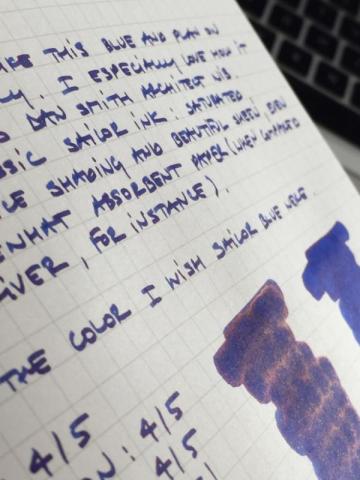 THIS BLUE AND PLAN ON
. I ESPECIALLY LOVE HOW IT
DAN SMITH ARCHITECT NIB.
SSIC SAILOR INK: SATURATED
SHADING AND BEAUTIFUL SHEEN, EVEN
EWHAT ABSORBENT PAPER (WHEN COMPARED
RIVER, FOR INSTANCE).
THE COLOR I WISH SAILOR BLUE WERE.
4/5
N: 4/5
4/5